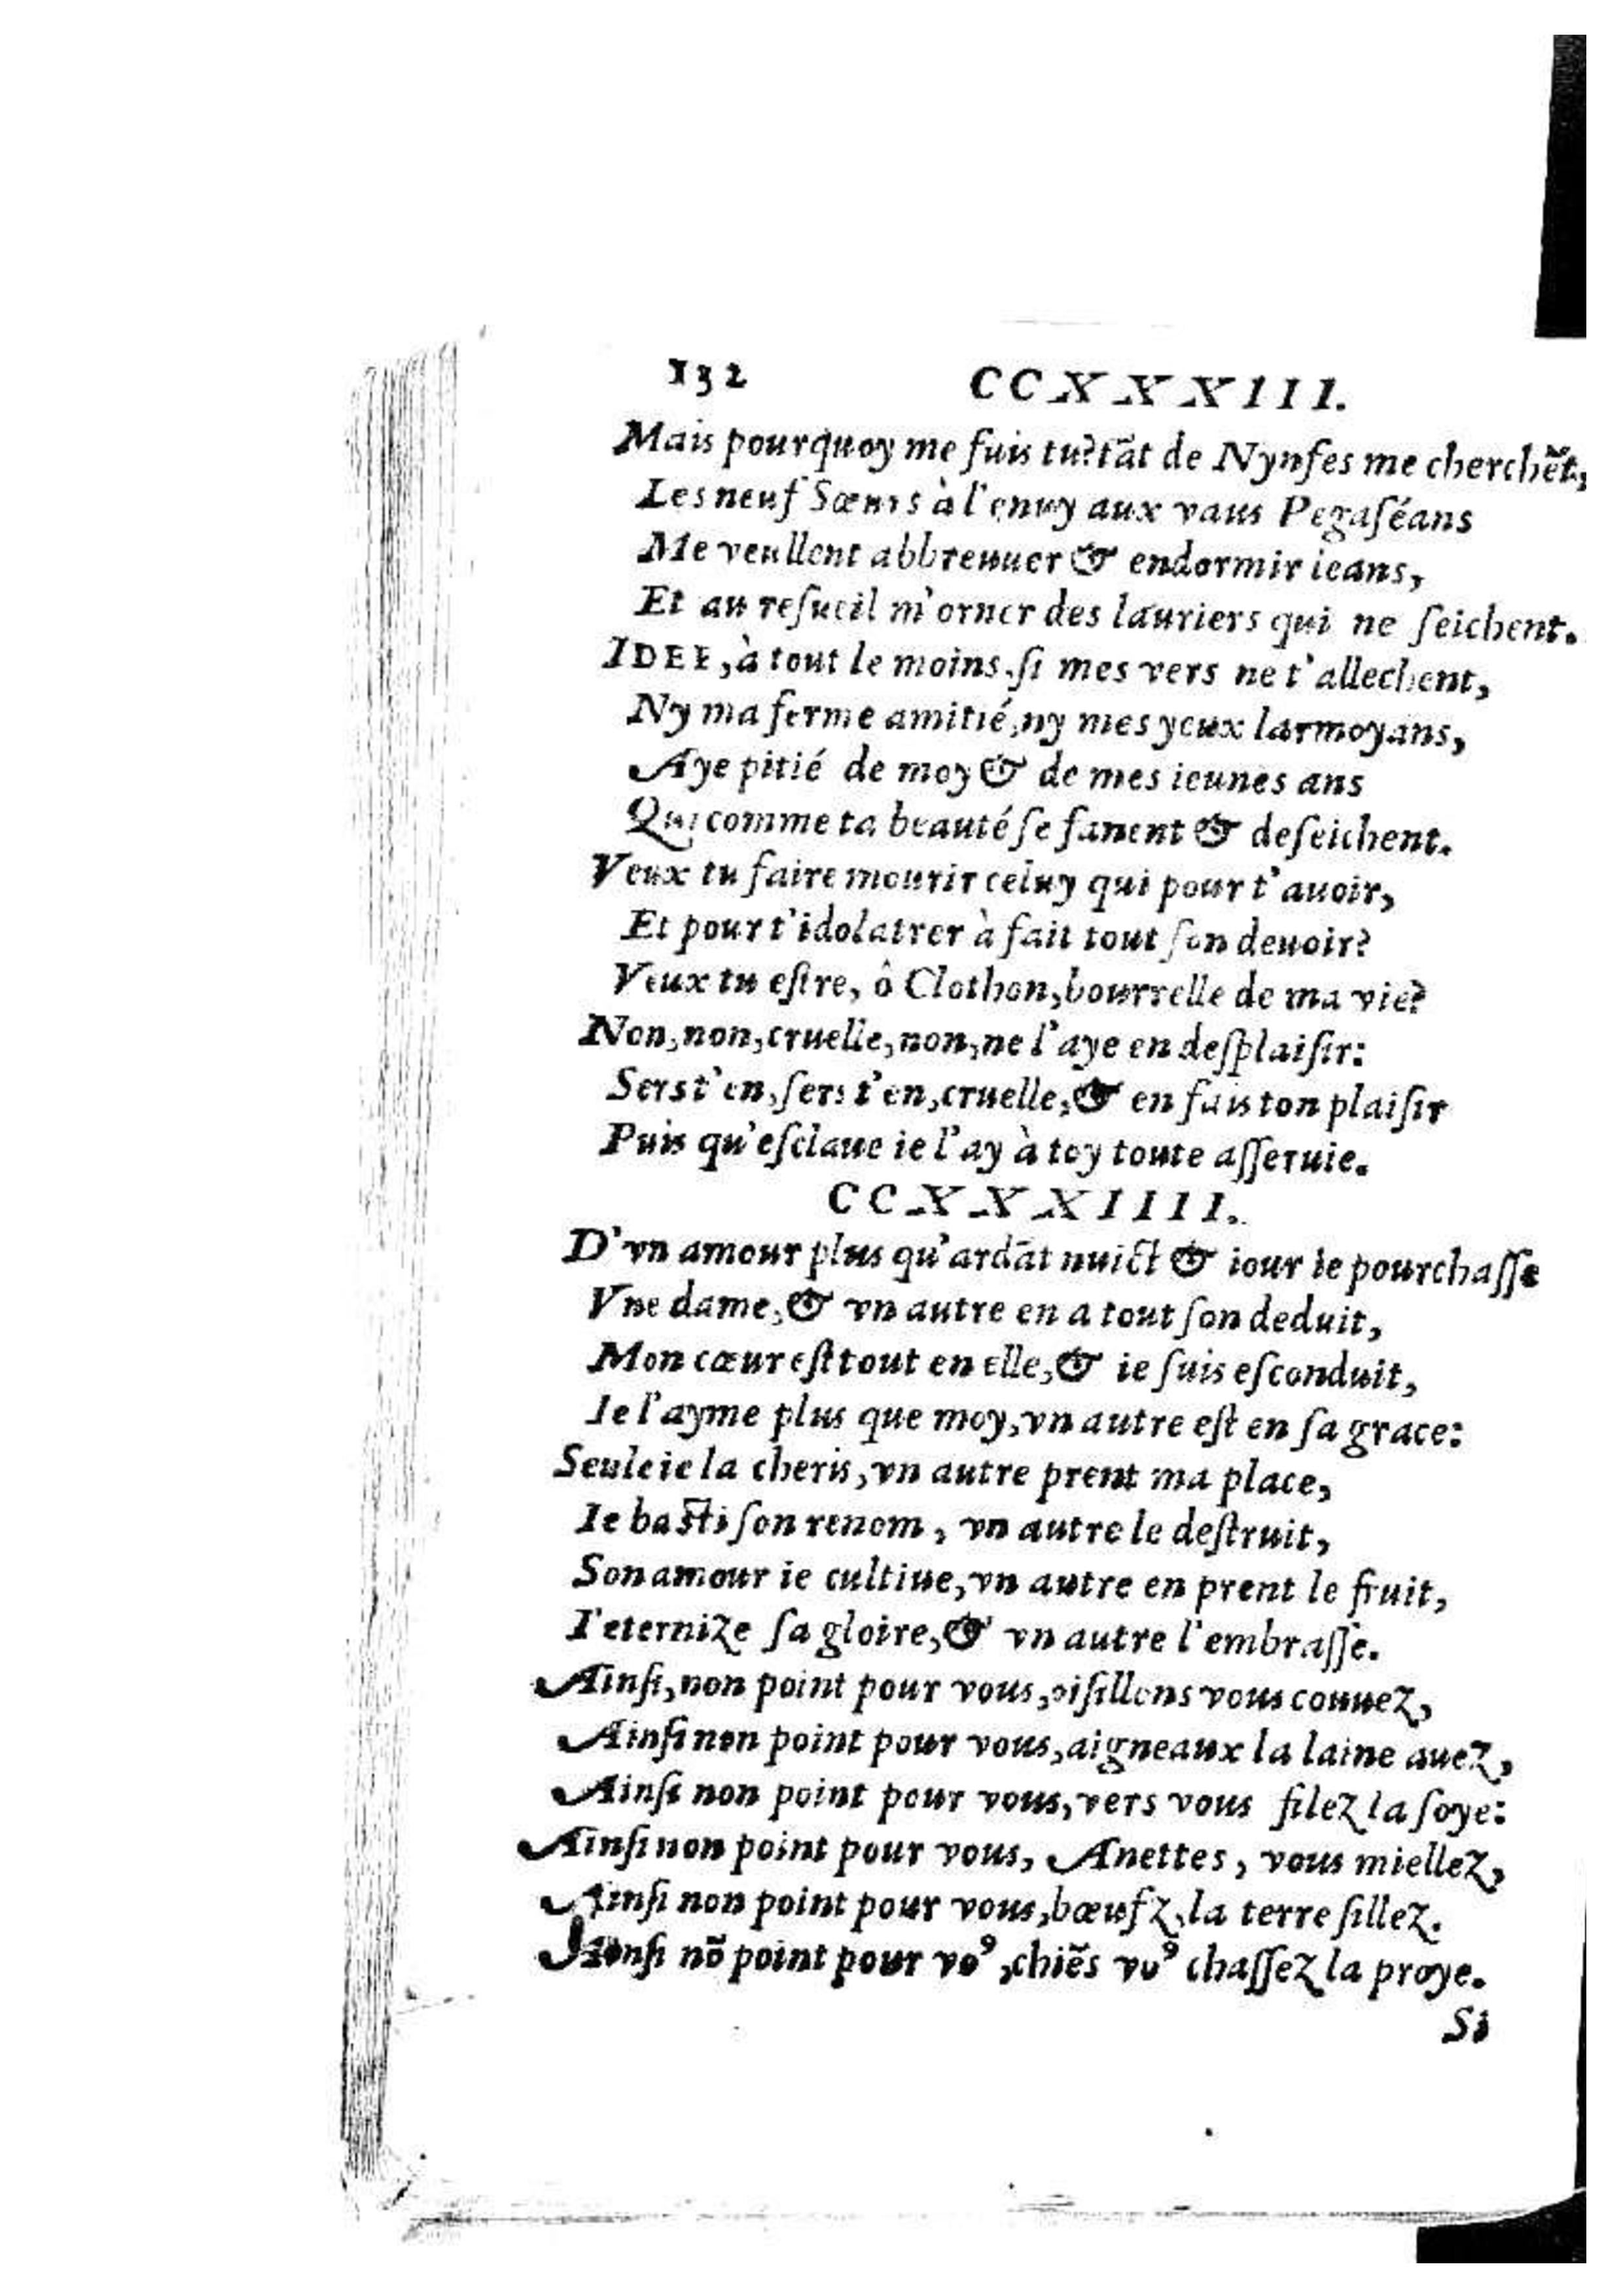 132 CCXXXIII.
Mais pourquoy me fuis tu? tãt de Nynfes me cherchẽt,
Les neuf Sœurs à l'enuy aux vaus Pegaſéans
Me veullent abbreuuer & endormir ieans,
Et au reſueil m'orner des lauriers qui ne ſeichent.
IDEE, à tout le moins, ſi mes vers ne t'allechent,
Ny ma ferme amitié, ny mes yeux larmoyans,
Aye pitié de moy & de mes ieunes ans
Qui comme ta beauté ſe fanent & deſeichent.
Veux tu faire mourir celuy qui pour t'auoir,
Et pour t'idolatrer à fait tout ſon deuoir?
Veux tu eſtre, ô Clothon, bourrelle de ma vie?
Non, non, cruelle, non, ne l'aye en deſplaiſir:
Sers t'en, ſers t'en, cruelle, & en fais ton plaiſir
Puis qu'eſclaue ie l'ay à toy toute aſſeruie.
CCXXXIIII.
D'vn amour plus qu'ardãt nuict & iour ie pourchaſſe
Vne dame, & vn autre en a tout ſon deduit,
Mon cœur eſt tout en elle, & ie ſuis eſconduit,
Ie l'ayme plus que moy, vn autre eſt en ſa grace:
Seule ie la cheris, vn autre prent ma place,
Ie baſti ſon renom, vn autre le deſtruit,
Son amour ie cultiue, vn autre en prent le fruit,
I'eternize ſa gloire, & vn autre l'embraſſe.
Ainſi, non point pour vous, oiſillons vous couuez,
Ainſi non point pour vous, aigneaux la laine auez,
Ainſi non point pour vous, vers vous filez la ſoye:
Ainſi non point pour vous, Auettes, vous miellez,
Ainſi non point pour vous, bœufz, la terre ſillez.
Ainſi nõ point pour voꝰ, chiẽs voꝰ chaſſez la proye.
Si